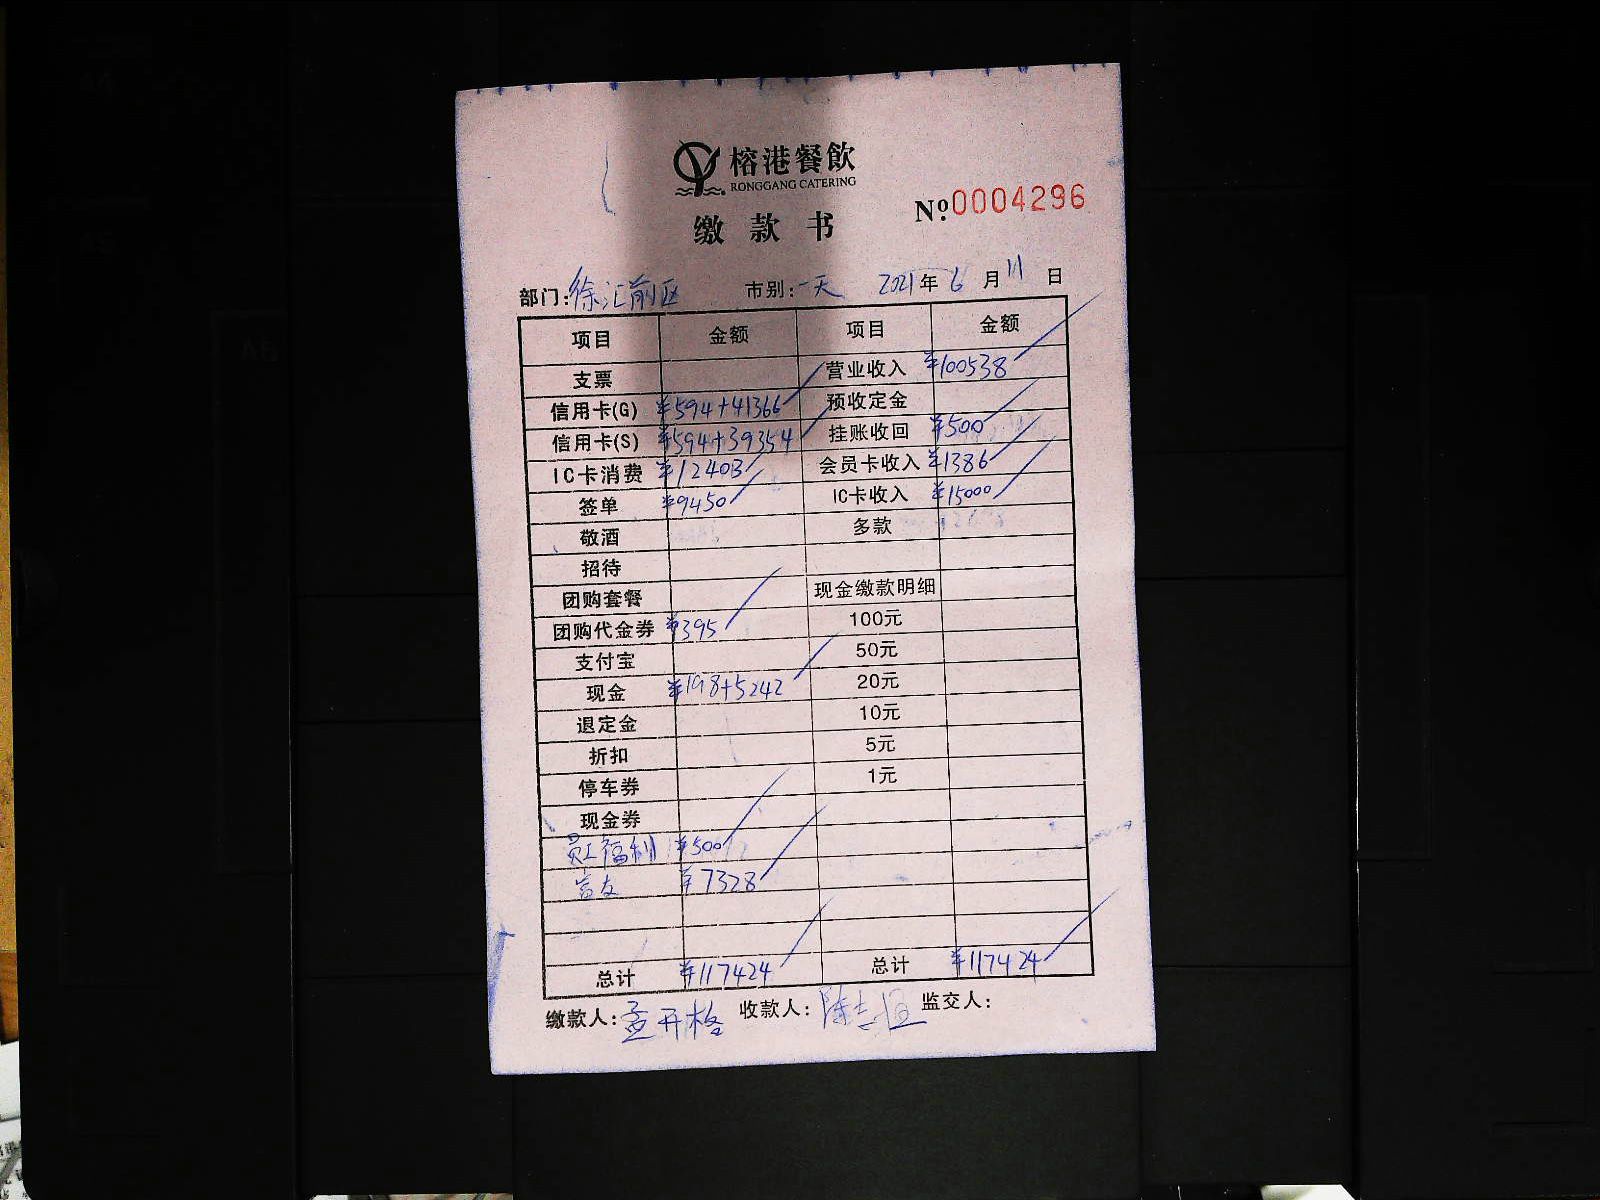 榕港餐飲
RONGGANG CATERING
缴款书
№0004296
部门:徐汇前区 市别:一天 2021年6月11日
项目 金额 项目 金额
支票 营业收入 ¥100538
信用卡(G) ¥594+41366 预收定金
信用卡(S) ¥594+39354 挂账收回 ¥500
IC卡消费 ¥12403 会员卡收入 ¥1386
签单 ¥9450 IC卡收入 ¥15000
敬酒 多款
招待
团购套餐 现金缴款明细
团购代金券 ¥395 100元
支付宝 50元
现金 ¥198+5242 20元
退定金 10元
折扣 5元
停车券 1元
现金券
员工福利 ¥500
富友 ¥7328
总计 ¥117424 总计 ¥117424
缴款人:孟开格 收款人: 监交人: